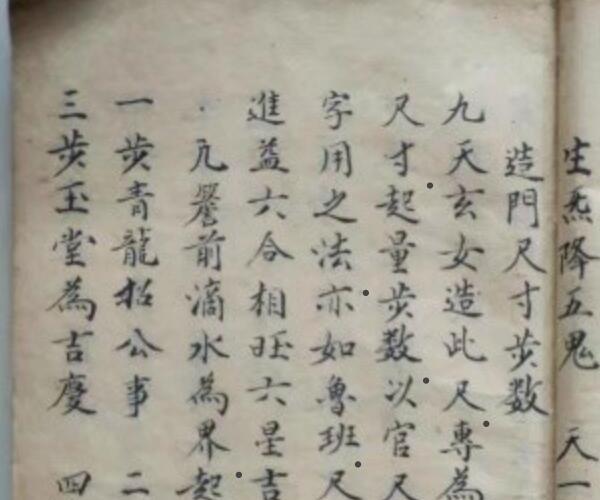 生炁降五鬼　天一
造門尺寸步数
九天玄女造此尺專為
尺寸起量步数以官尺
字用之法亦如魯班尺
進益六合相旺六星吉
凡譽前滴水為界起
一步青龍招公事　二
三步玉堂為吉慶　四